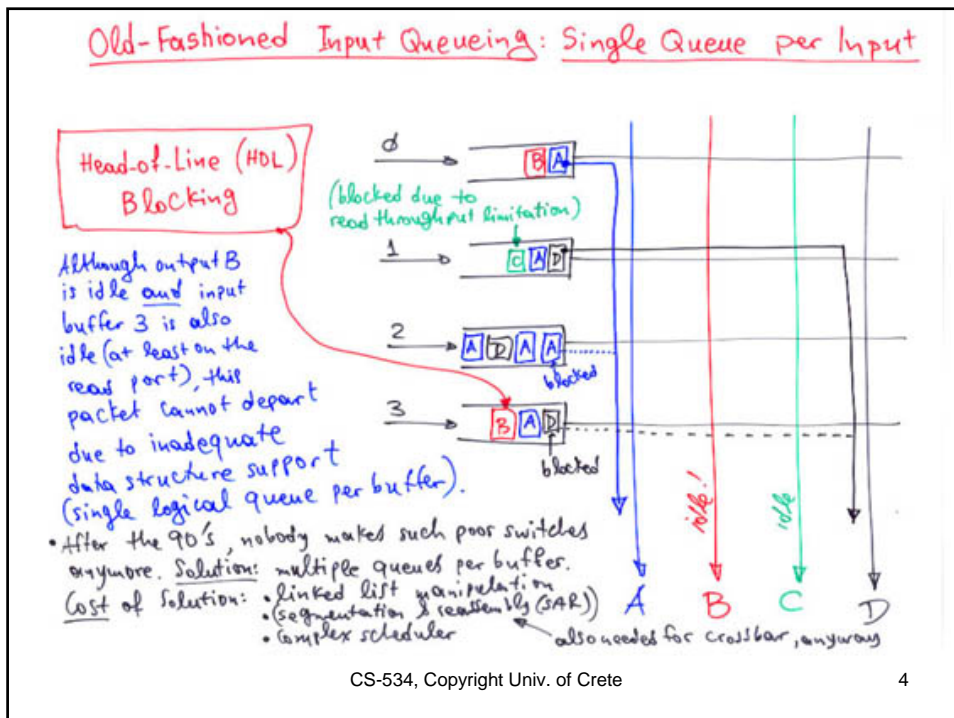 Old-Fashioned Input Queueing: Single Queue per Input
Head-of-Line (HOL)
Blocking
0
B A
(blocked due to
read throughput limitation)
1
C A D
Although output B
is idle and input
buffer 3 is also
idle (at least on the
read port), this
packet cannot depart
due to inadequate
data structure support
(single logical queue per buffer).
2
A D A A
blocked
3
B A D
blocked
idle!
idle
• After the 90's, nobody makes such poor switches
anymore. Solution: multiple queues per buffer.
Cost of Solution: • linked list manipulation
• (segmentation & reassembly (SAR))
• complex scheduler
also needed for crossbar, anyway
A B C D
CS-534, Copyright Univ. of Crete
4